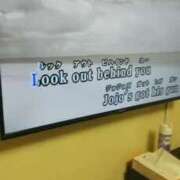 ルック アウト ビハインド ユー
Look out behind you
ジョジョズ ガット ヒズ ガン
Jojo's got his gun